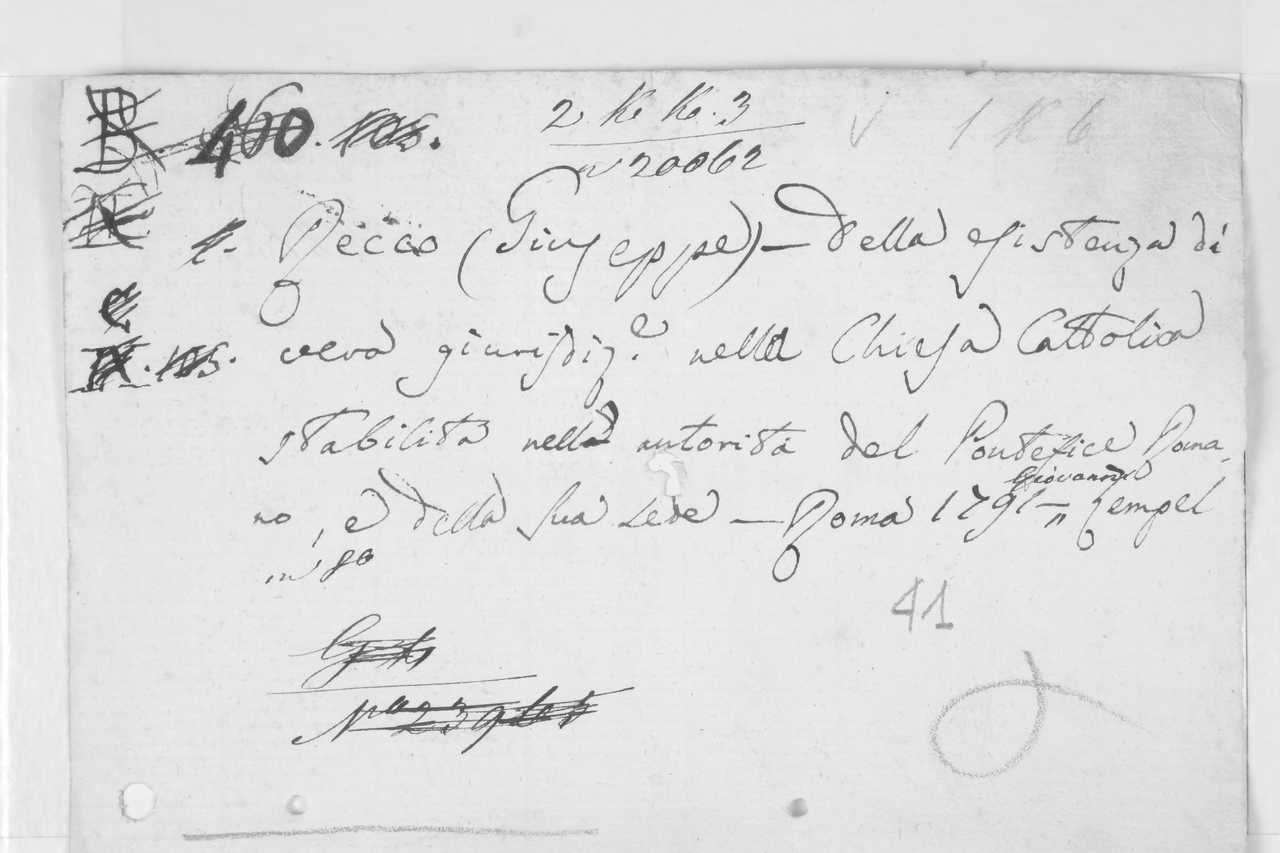 2 K K. 3
460. 105.
n 20062
1 K 6
1. Recco (Giuseppe) — Della esistenza di
vera giurisdiz.e nella Chiesa Cattolica
stabilita nella autorità del Pontefice Roma-
no, e della sua sede — Roma 1791 — Giovanni Zempel
in 8o
41